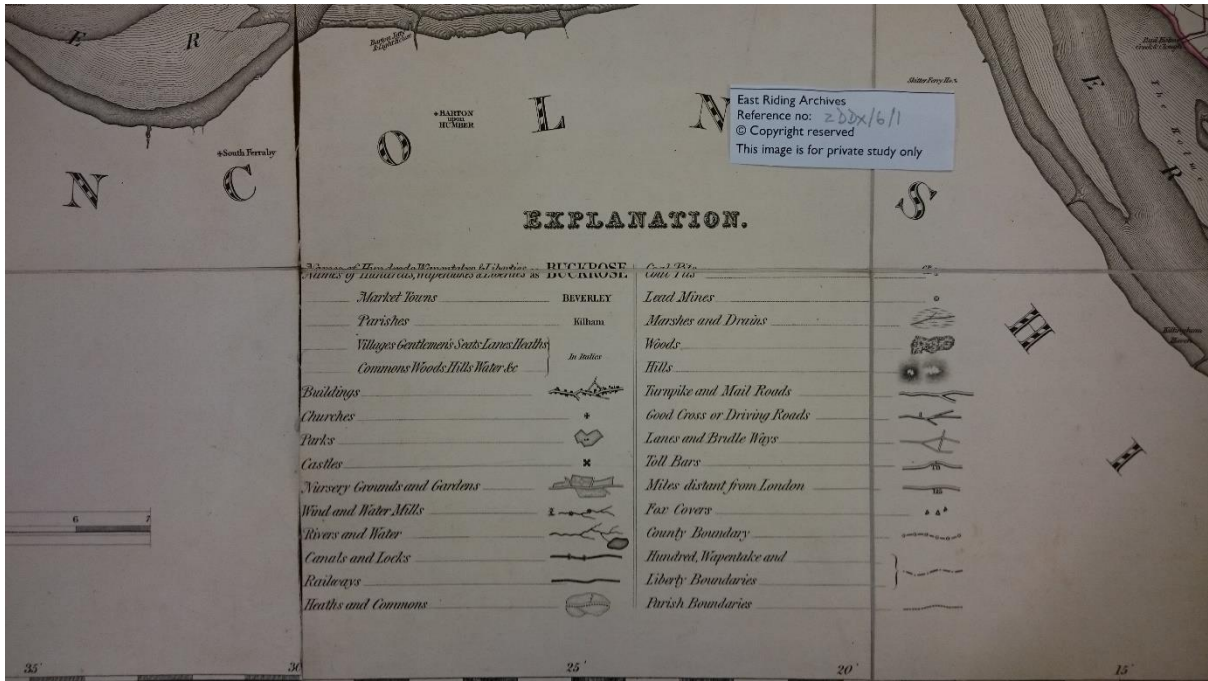 E R
Barton upon
HUMBER
+BARTON
upon
HUMBER
+South Ferraby
N C O L N S H I
East Riding Archives
Reference no: ZDDX/6/1
© Copyright reserved
This image is for private study only
Skitter Ferry Ho.
E R
EXPLANATION.
Names of Hundreds, Wapentakes & Liberties as BUCKROSE
Market Towns BEVERLEY
Parishes Kilham
Villages Gentlemen's Seats Lanes Heaths
Commons Woods Hills Water &c
In Italics
Buildings
Churches
Parks
Castles
Nursery Grounds and Gardens
Wind and Water Mills
Rivers and Water
Canals and Locks
Railways
Heaths and Commons
Coal Pits
Lead Mines
Marshes and Drains
Woods
Hills
Turnpike and Mail Roads
Good Cross or Driving Roads
Lanes and Bridle Ways
Toll Bars TB
Miles distant from London
Fox Covers
County Boundary
Hundred, Wapentake and
Liberty Boundaries
Parish Boundaries
6 7
35' 30 25' 20' 15'